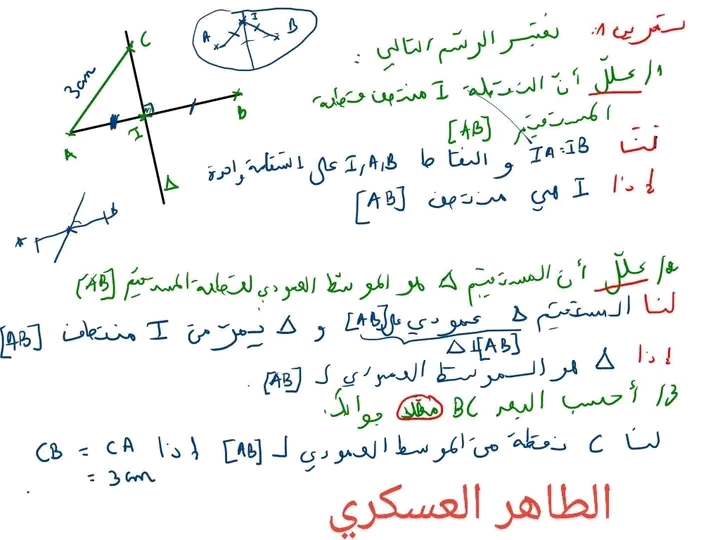 تمرين 1: نعتبر الرسم التالي:
1/ علّل أن النقطة I منتصف قطعة
المستقيم [AB]
لنا IA=IB و النقاط I,A,B على استقامة واحدة
إذا I هي منتصف [AB]
2/ علّل أن المستقيم Δ هو الموسّط العمودي لقطعة المستقيم [AB]
لنا المستقيم Δ عمودي على [AB] و Δ يمرّ من I منتصف [AB]
Δ⊥[AB]
إذا Δ هو الموسّط العمودي لـ [AB].
3/ أحسب البعد BC معللا جوابك.
لنا C نقطة من الموسّط العمودي لـ [AB] إذا CB = CA
= 3cm
الطاهر العسكري
C
3cm
A
I
B
Δ
A
I
B
A
B